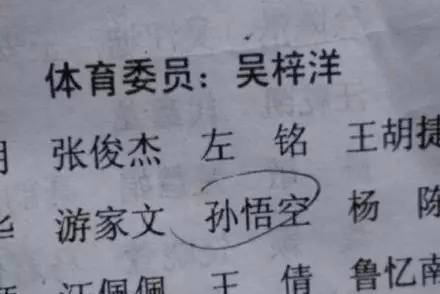 体育委员：吴梓洋
张俊杰 左 铭 王胡捷
游家文 孙悟空 杨 陈
江佩佩 王 倩 鲁忆南